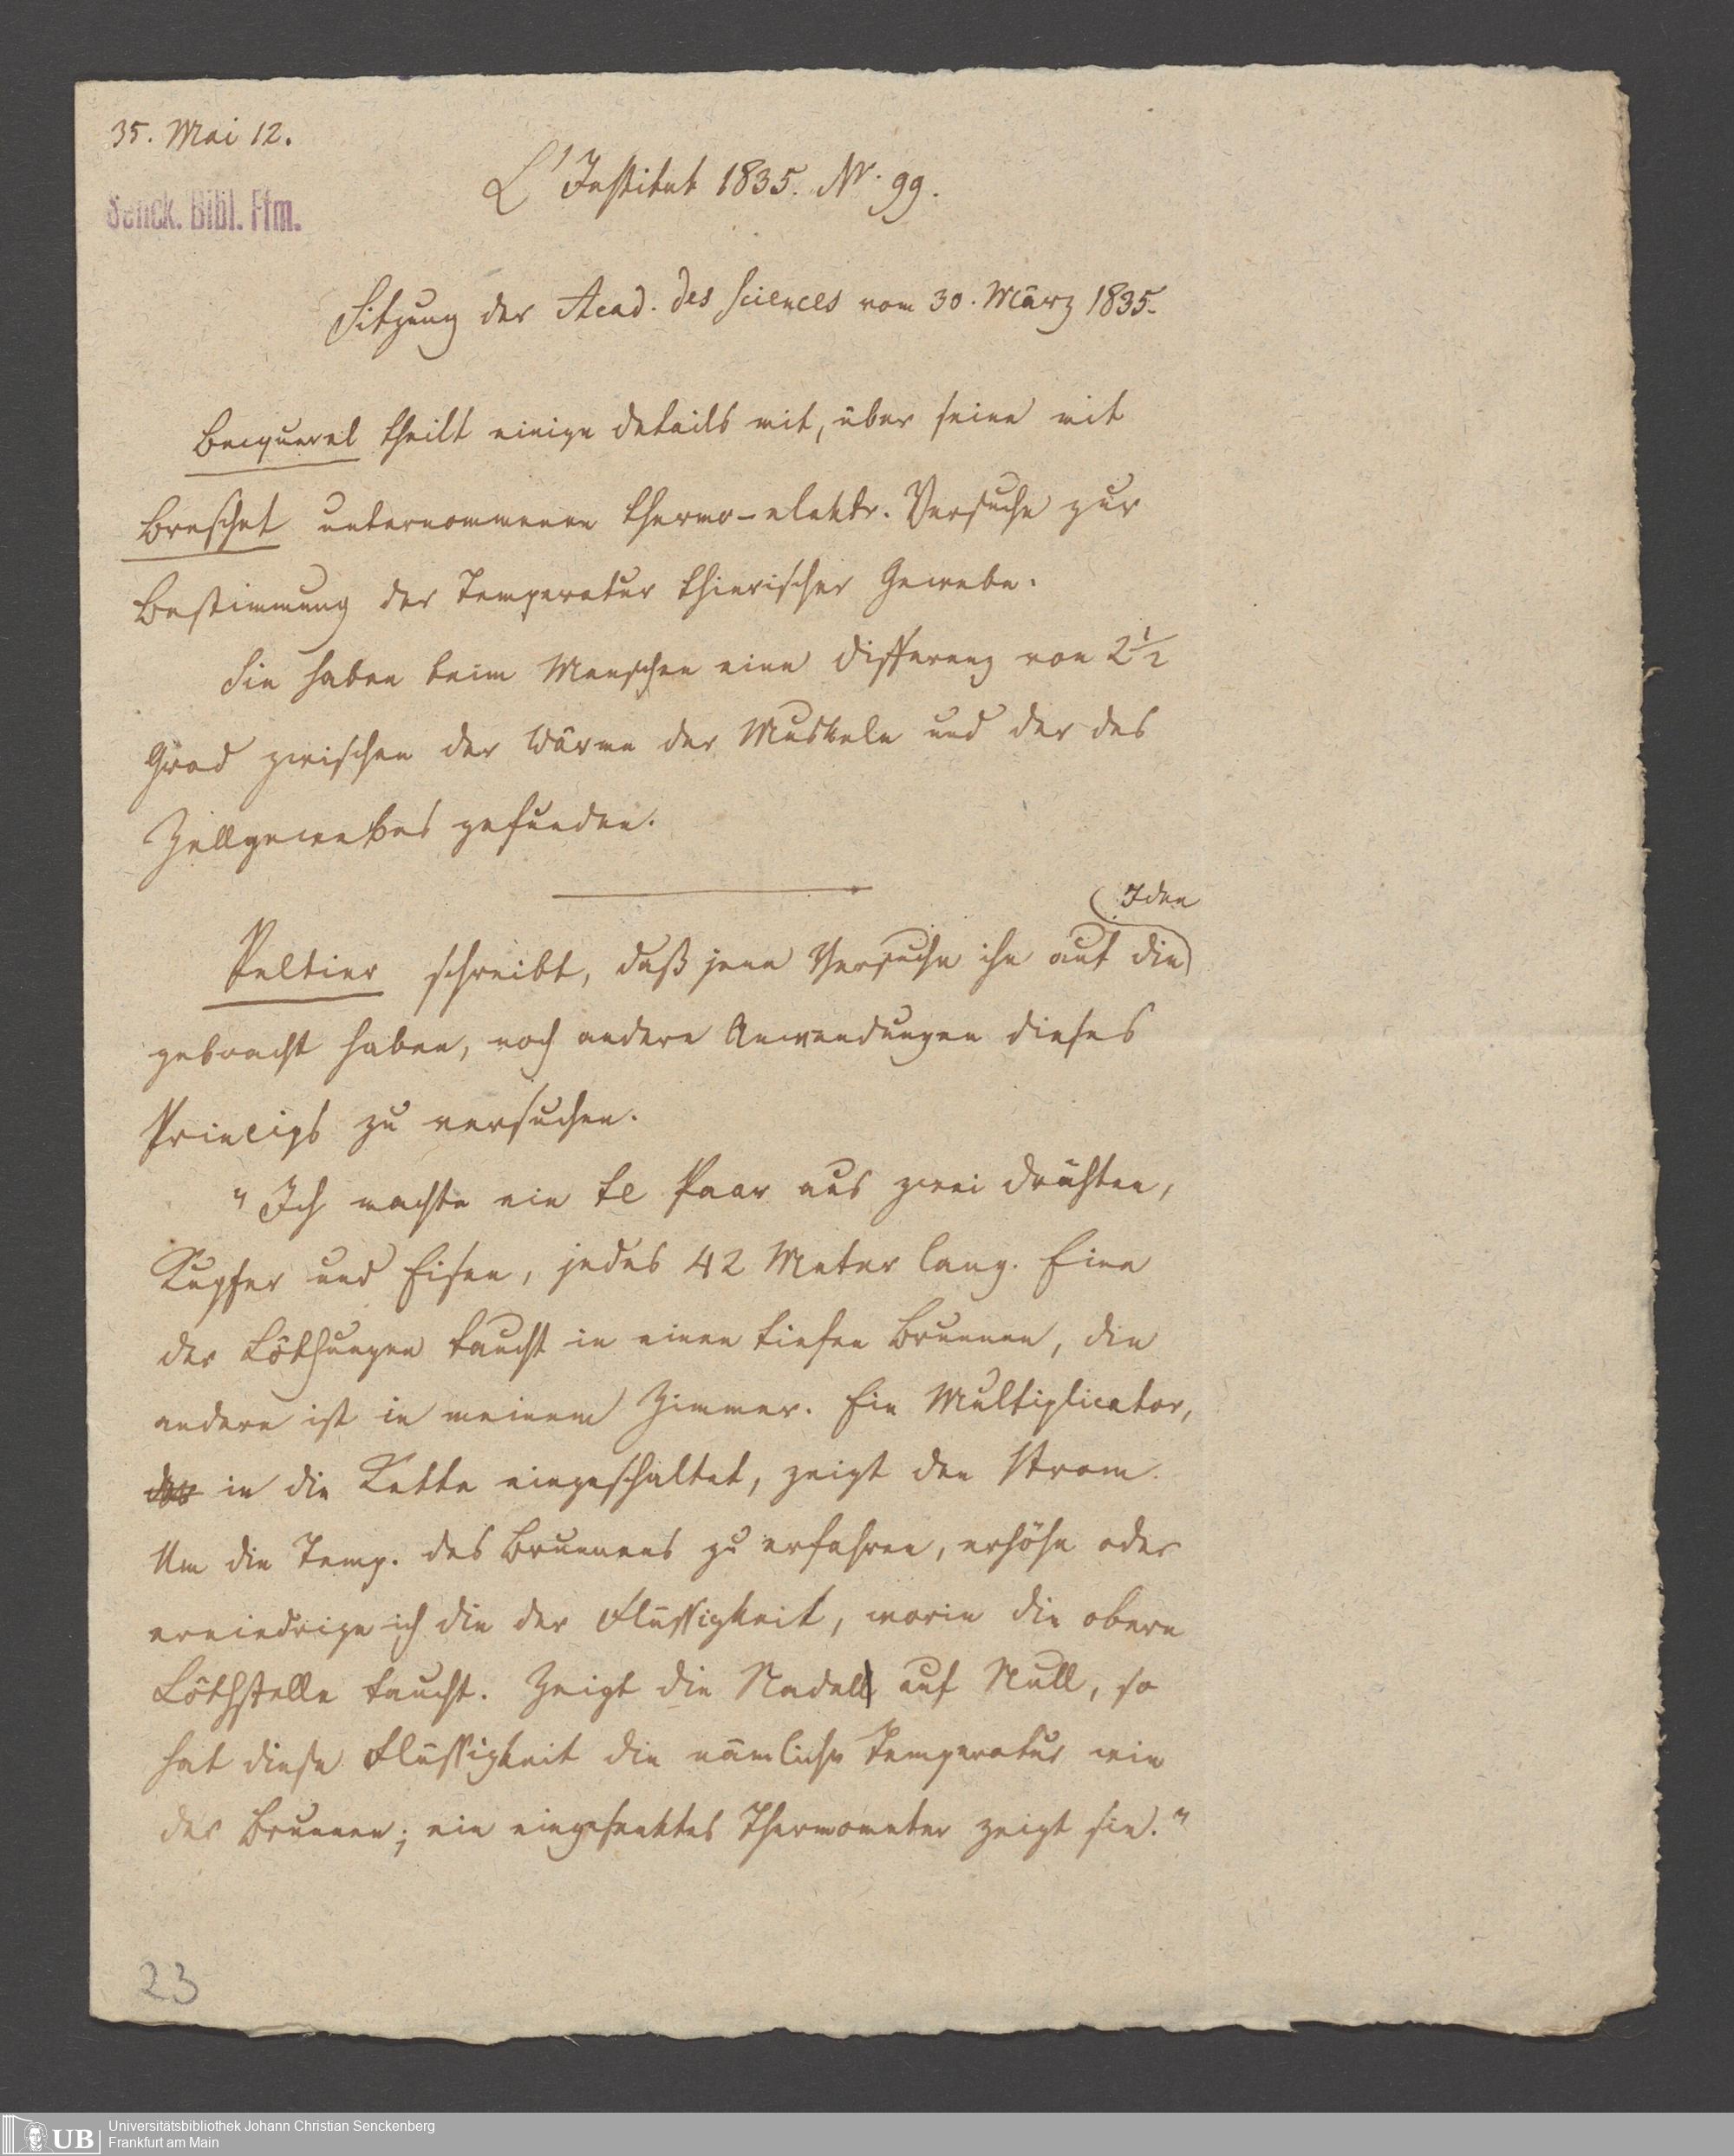 35. Mai 12.
Senck. Bibl. Ffm.
L'Institut 1835. Nr. 99.
Sitzung der Acad. des sciences vom 30. März 1835.
Becquerel theilt einige Details mit, über seine mit
Breschet unternommenen thermo-elektr. Versuche zur
Bestimmung der Temperatur thierischer Gewebe.
Sie haben beim Menschen eine Differenz von 2 1/2
Grad zwischen der Wärme der Muskeln und der des
Zellgewebes gefunden.
Idee
Peltier schreibt, daß jene Versuche ihn auf die
gebracht haben, noch andere Anwendungen dieses
Princips zu versuchen.
"Ich machte ein te Paar aus zwei Drähten,
Kupfer und Eisen, jedes 42 Meter lang. Eine
der Löthungen taucht in einen tiefen Brunnen, die
andere ist in meinem Zimmer. Ein Multiplicator,
in die Kette eingeschaltet, zeigt den Strom.
Um die Temp. des Brunnens zu erfahren, erhöhe oder
erniedrige ich die der Flüssigkeit, worin die obere
Löthstelle taucht. Zeigt die Nadel auf Null, so
hat diese Flüssigkeit die nämliche Temperatur wie
der Brunnen; ein eingesenktes Thermometer zeigt sie."
23
UB
Universitätsbibliothek Johann Christian Senckenberg
Frankfurt am Main